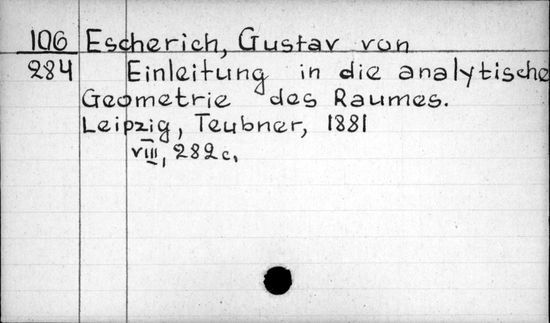 106 Escherich, Gustav von
284 Einleitung in die analytische
Geometrie des Raumes.
Leipzig, Teubner, 1881
VIII, 282 c.